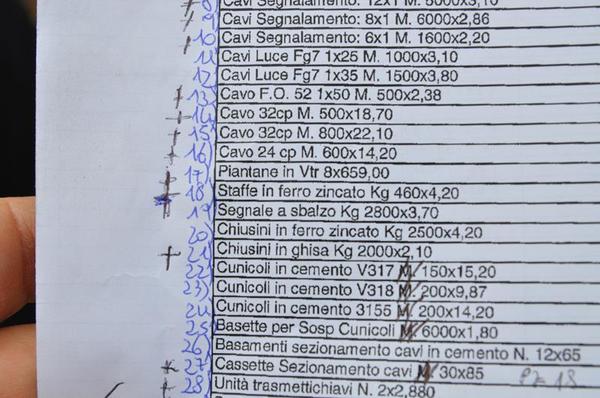 8) Cavi Segnalamento: 12x1 M. 5000x3,10
9) Cavi Segnalamento: 8x1 M. 6000x2,86
10) Cavi Segnalamento: 6x1 M. 1600x2,20
11) Cavi Luce Fg7 1x25 M. 1000x3,10
12) Cavi Luce Fg7 1x35 M. 1500x3,80
13) Cavo F.O. 52 1x50 M. 500x2,38
14) Cavo 32cp M. 500x18,70
15) Cavo 32cp M. 800x22,10
16) Cavo 24 cp M. 600x14,20
17) Piantane in Vtr 8x659,00
18) Staffe in ferro zincato Kg 460x4,20
19) Segnale a sbalzo Kg 2800x3,70
20) Chiusini in ferro zincato Kg 2500x4,20
21) Chiusini in ghisa Kg 2000x2,10
22) Cunicoli in cemento V317 M. 150x15,20
23) Cunicoli in cemento V318 M. 200x9,87
24) Cunicoli in cemento 3155 M. 200x14,20
25) Basette per Sosp Cunicoli M. 6000x1,80
26) Basamenti sezionamento cavi in cemento N. 12x65
27) Cassette Sezionamento cavi M 30x85 Pz 18
28) Unità trasmettichiavi N. 2x2,880